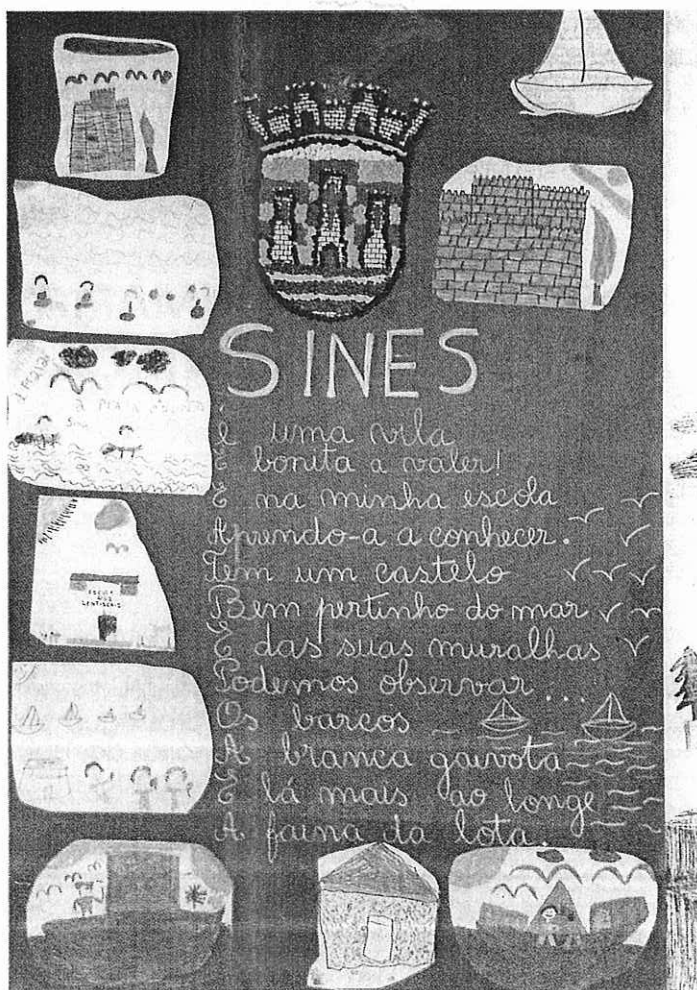 SINES
é uma vila
E bonita a valer!
E na minha escola
Aprendo-a a conhecer.
Tem um castelo
Bem pertinho do mar
E das suas muralhas
Podemos observar...
Os barcos
A branca gaivota
E lá mais ao longe
A faina da lota.
ESCOLA